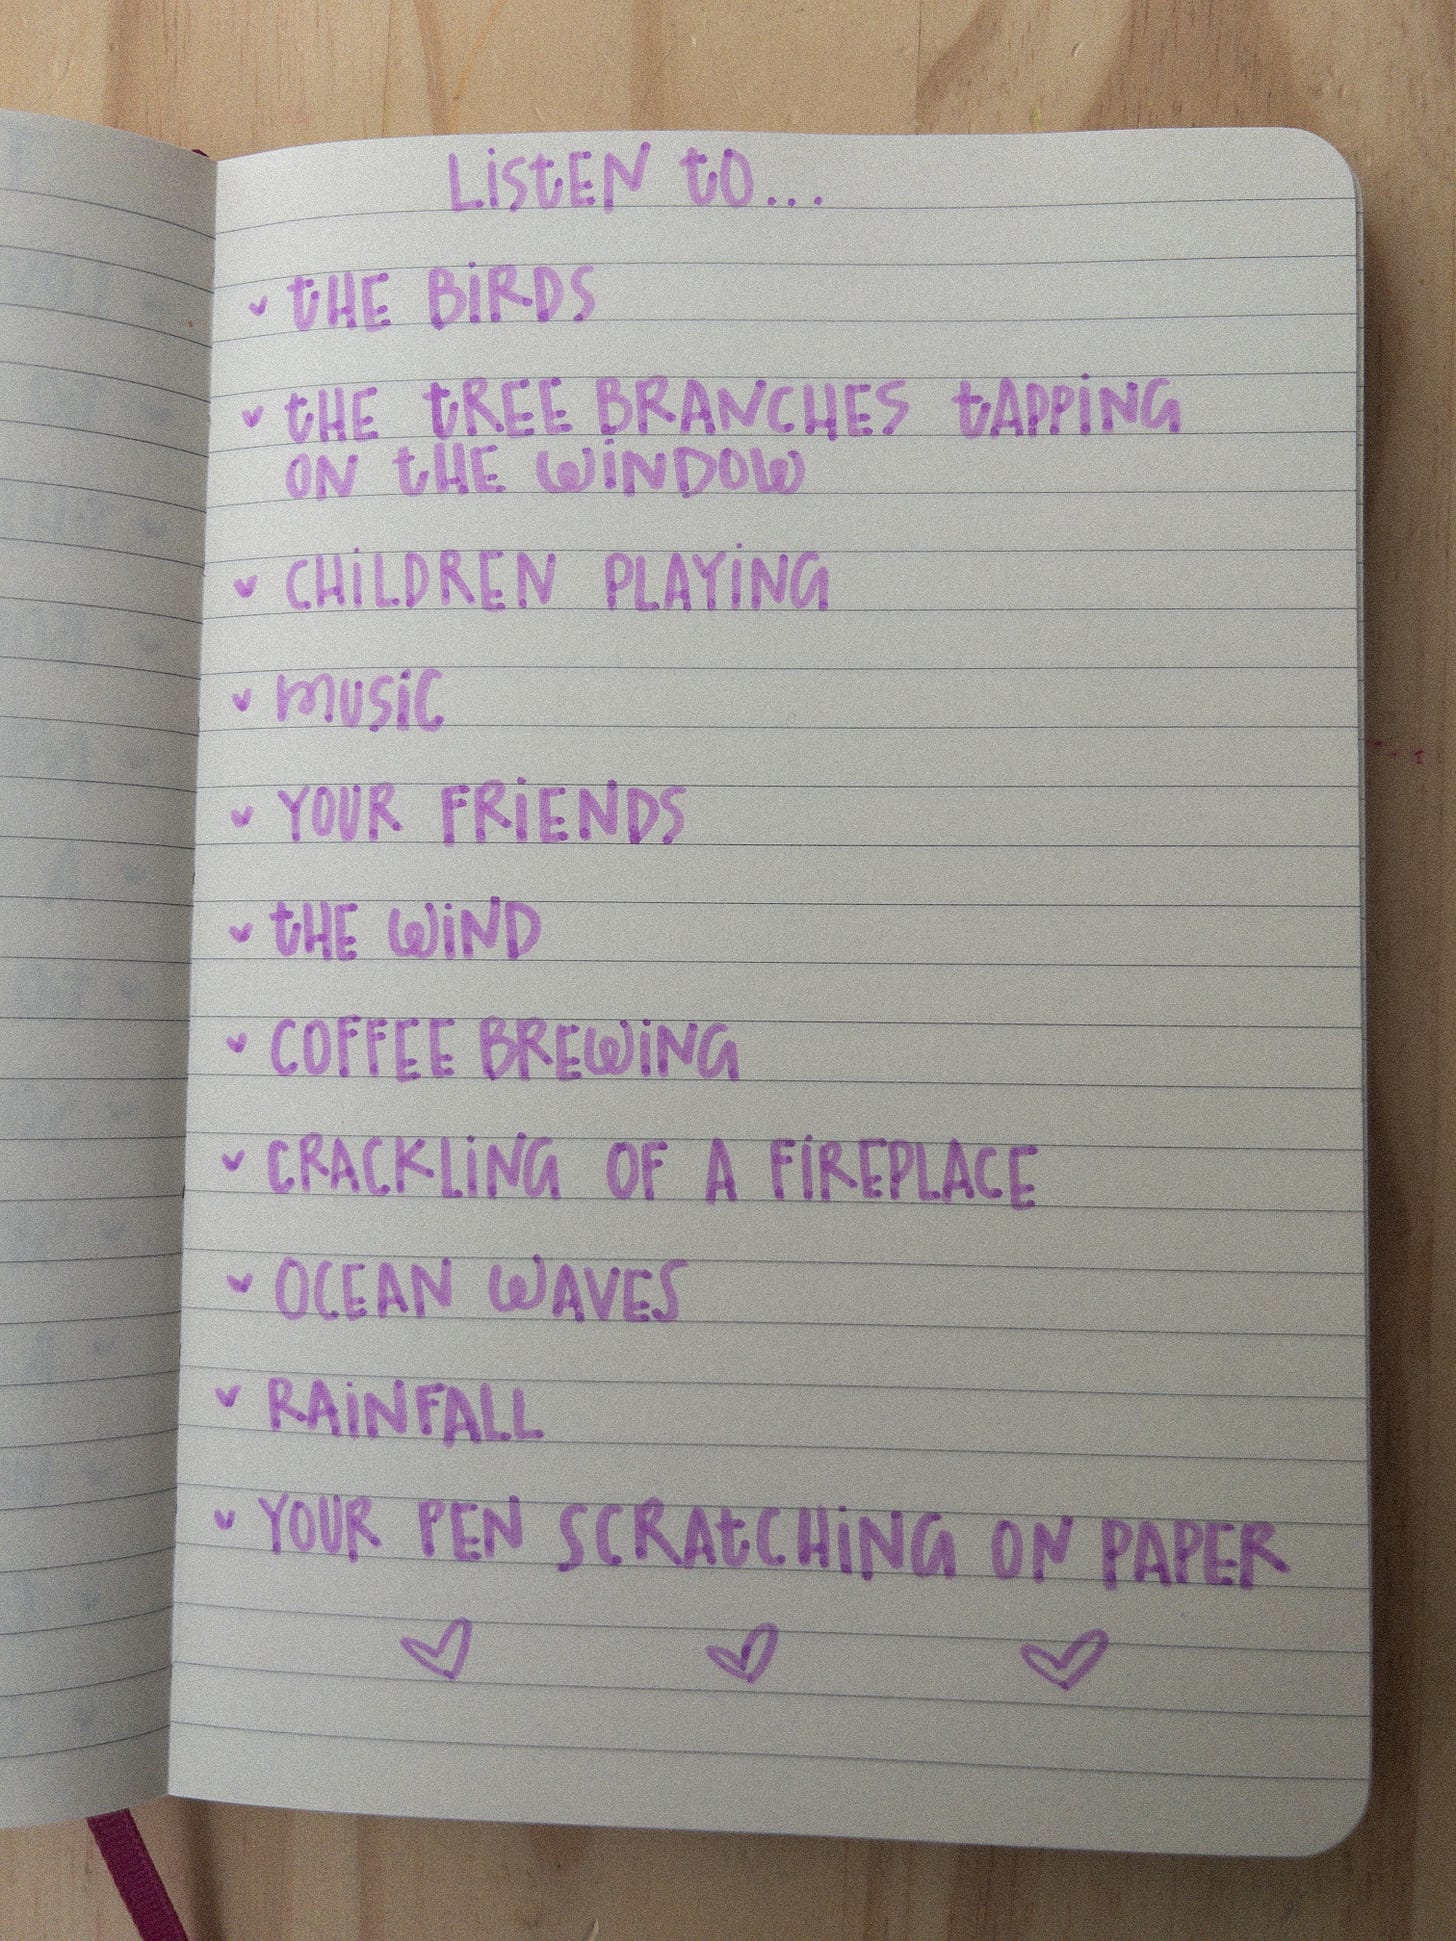 Listen to...
the Birds
the tree branches tapping
on the window
children playing
music
your friends
the wind
coffee brewing
crackling of a fireplace
ocean waves
rainfall
your pen scratching on paper